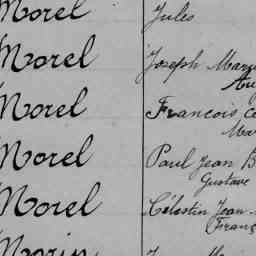 Morel Jules
Morel Joseph Marie
Morel Francois
Morel Paul Jean B
Gustave
Morel Célestin Jean
Franç
Morin